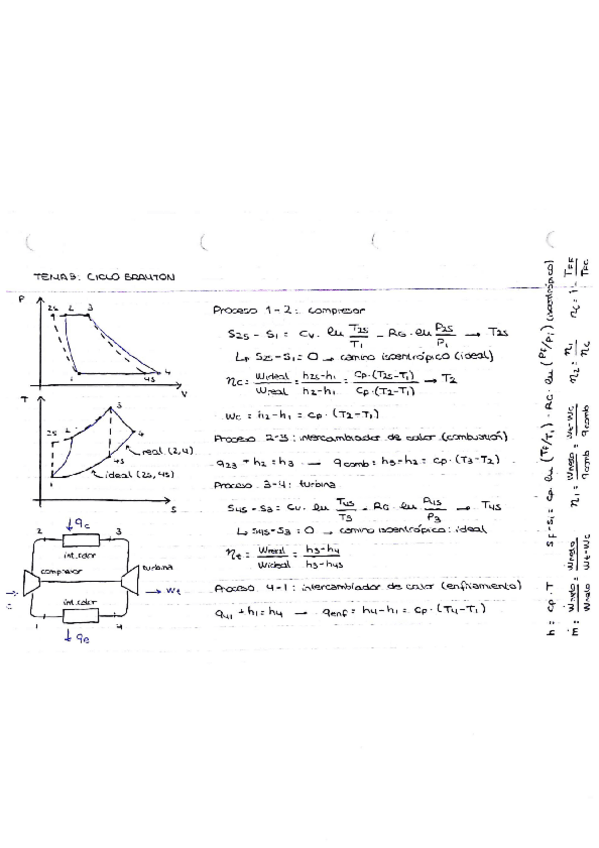 TEMA 3: CICLO BRAYTON
P
2s 2 3
1 4s 4
V
T
3
2s 2 4
4s
real (2,4)
1 ideal (2s, 4s)
S
qc
2 3
int.calor
compresor turbina
wt
c
int.calor
1 4
Proceso 1-2: compresor
S2s - S1 = Cv · ln T2s/T1 - RG · ln P2s/P1 → T2s
↳ S2s - S1 = 0 → camino isoentrópico (ideal)
ηc = Wideal/Wreal = h2s-h1/h2-h1 = Cp·(T2s-T1)/Cp·(T2-T1) → T2
wc = h2-h1 = cp · (T2-T1)
Proceso 2-3: intercambiador de calor (combustión)
q23 + h2 = h3 → qcomb = h3-h2 = cp · (T3-T2)
Proceso 3-4: turbina
S4s - S3 = Cv · ln T4s/T3 - RG · ln P4s/P3 → T4s
↳ S4s - S3 = 0 → camino isoentrópico: ideal
ηt = Wreal/Wideal = h3-h4/h3-h4s
Proceso 4-1: intercambiador de calor (enfriamiento)
q41 + h1 = h4 → qenf = h4-h1 = cp · (T4-T1)
h = cp · T Sf-Si = cp · ln (Tf/Ti) - RG · ln (Pf/Pi) (isentrópico)
ṁ = Ẇneto/Wneto = Ẇneto/wt-wc η1 = Wneto/qcomb = wt-wc/qcomb η2 = η1/ηc ηc = 1 - TFF/TFC